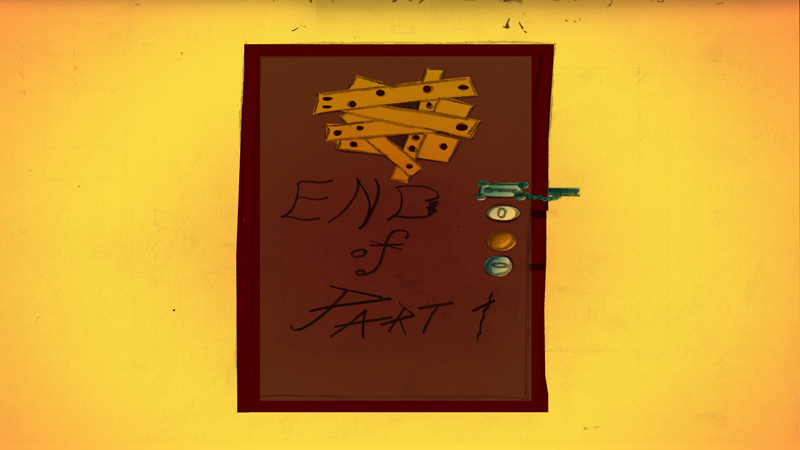 END
of
PART 1